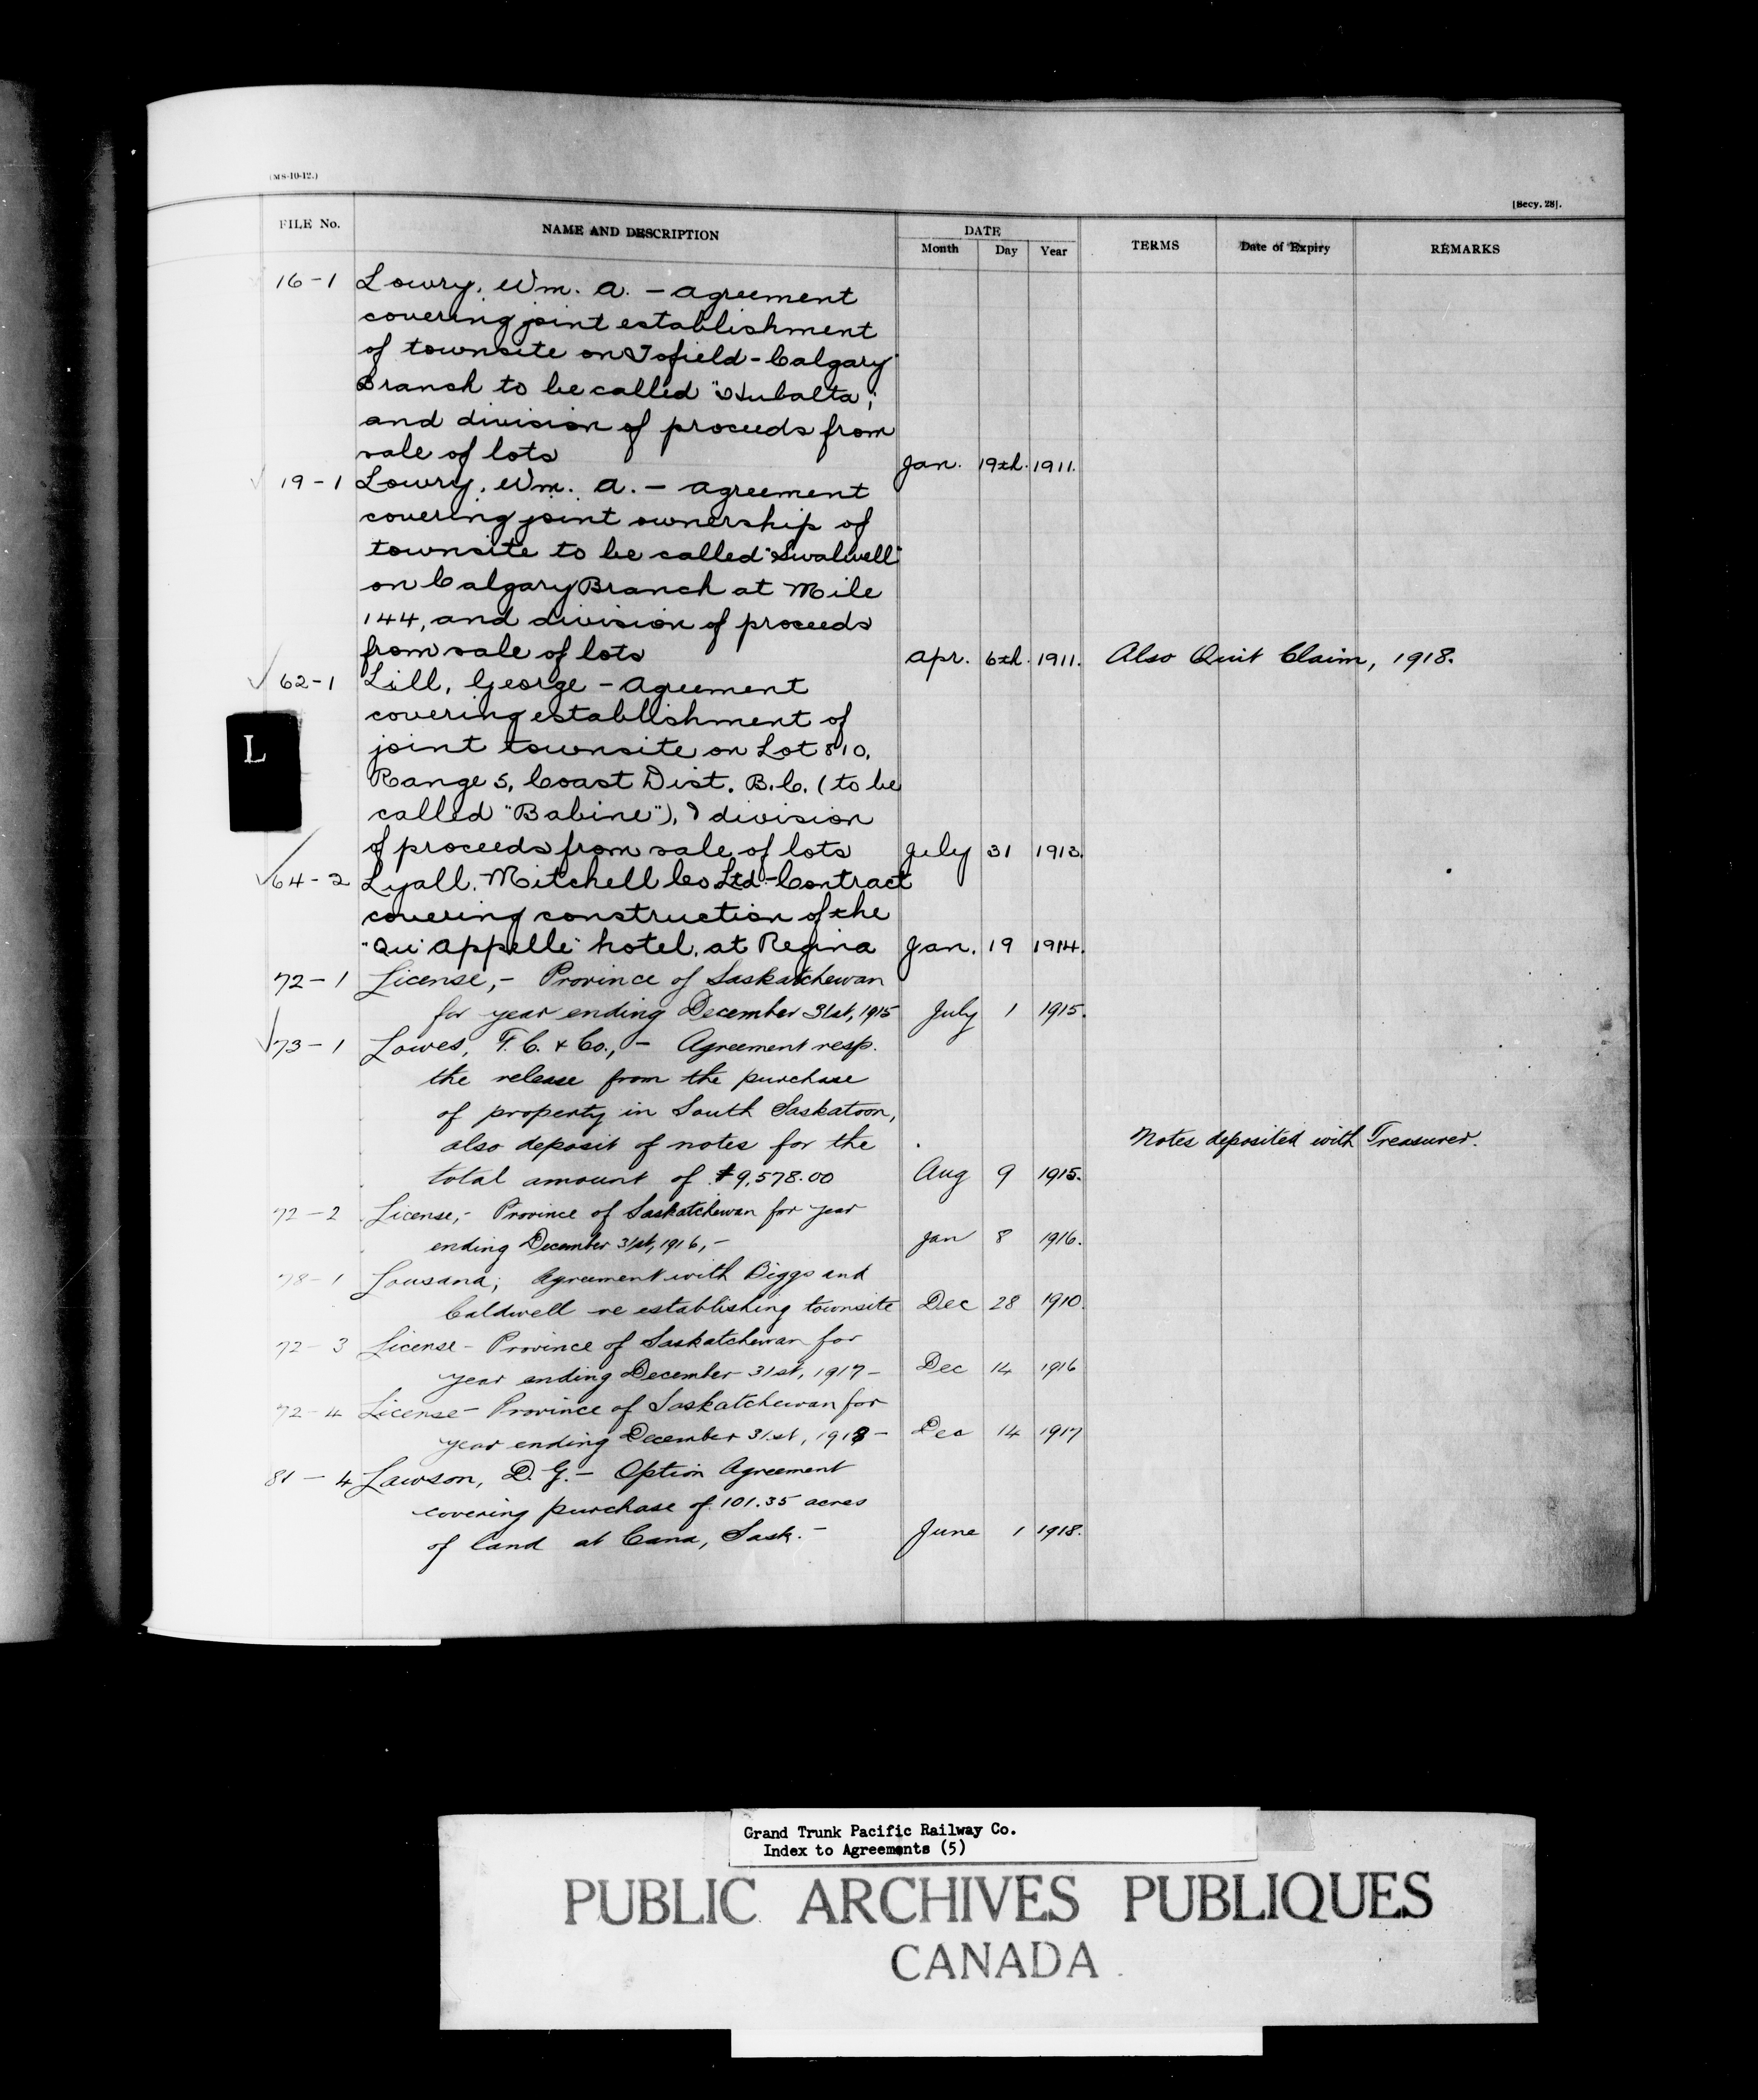 (MS-10-12.)
[Secy. 28].
FILE No. NAME AND DESCRIPTION DATE TERMS Date of Expiry REMARKS
Month Day Year
16-1 Lowry, Wm. A. - Agreement
covering joint establishment
of townsite on Tofield-Calgary
Branch to be called "Hubalta",
and division of proceeds from
sale of lots Jan. 19th. 1911.
19-1 Lowry, Wm. A. - Agreement
covering joint ownership of
townsite to be called "Swalwell"
on Calgary Branch at Mile
144, and division of proceeds
from sale of lots Apr. 6th. 1911. Also Quit Claim, 1918.
62-1 Lill, George - Agreement
covering establishment of
joint townsite on Lot 810,
Range 5, Coast Dist. B.C. (to be
called "Babine"), & division
of proceeds from sale of lots July 31 1913.
L
64-2 Lyall, Mitchell Co Ltd.-Contract
covering construction of the
"Qu'Appelle" hotel, at Regina Jan. 19 1914.
72-1 License,- Province of Saskatchewan
for year ending December 31st, 1915 July 1 1915.
73-1 Lowes, F. C. & Co., - Agreement resp.
the release from the purchase
of property in South Saskatoon,
also deposit of notes for the Notes deposited with Treasurer.
total amount of $9,578.00 Aug 9 1915.
72-2 License,- Province of Saskatchewan for year
ending December 31st, 1916,- Jan 8 1916.
78-1 Lousana; Agreement with Biggs and
Caldwell re establishing townsite Dec 28 1910.
72-3 License - Province of Saskatchewan for
year ending December 31st, 1917- Dec 14 1916
72-4 License - Province of Saskatchewan for
year ending December 31st, 1918- Dec 14 1917
81-4 Lawson, D. G. - Option Agreement
covering purchase of 101.35 acres
of land at Cana, Sask.- June 1 1918.
Grand Trunk Pacific Railway Co.
Index to Agreements (5)
PUBLIC ARCHIVES PUBLIQUES
CANADA